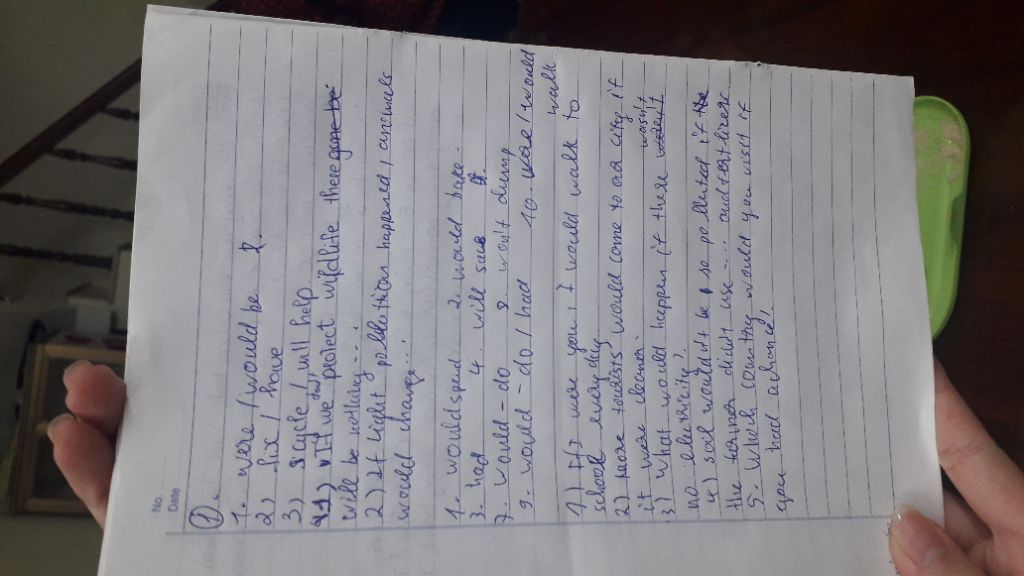 No.
Date
①.
1. were / would be
2) fix / have
3) cycle / will help
1) If we don't protect wildlife there
will be nothing...
2) If light pollution happened, animals
would change...
1. would spend 2. would bake.
3. had 4 will see
7. would - do 8 won't dump
9. would - do / had 10. were / would
walk
1) If I were you, I would walk to
school every day
2) more tourists would come to our city if
it were cleaner. wasn't
3) What would happen if there
no electricity?
4) soil wouldn't be so polluted if
the farmer didn't use... and fertilizers
5. Which country would you visit if
you had a chance?